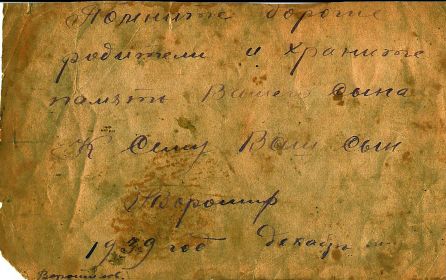 Помните дороше
родители и храните
память Вашего сына
К сему Ваш сын
1939 год декабрь
Ворошилов.